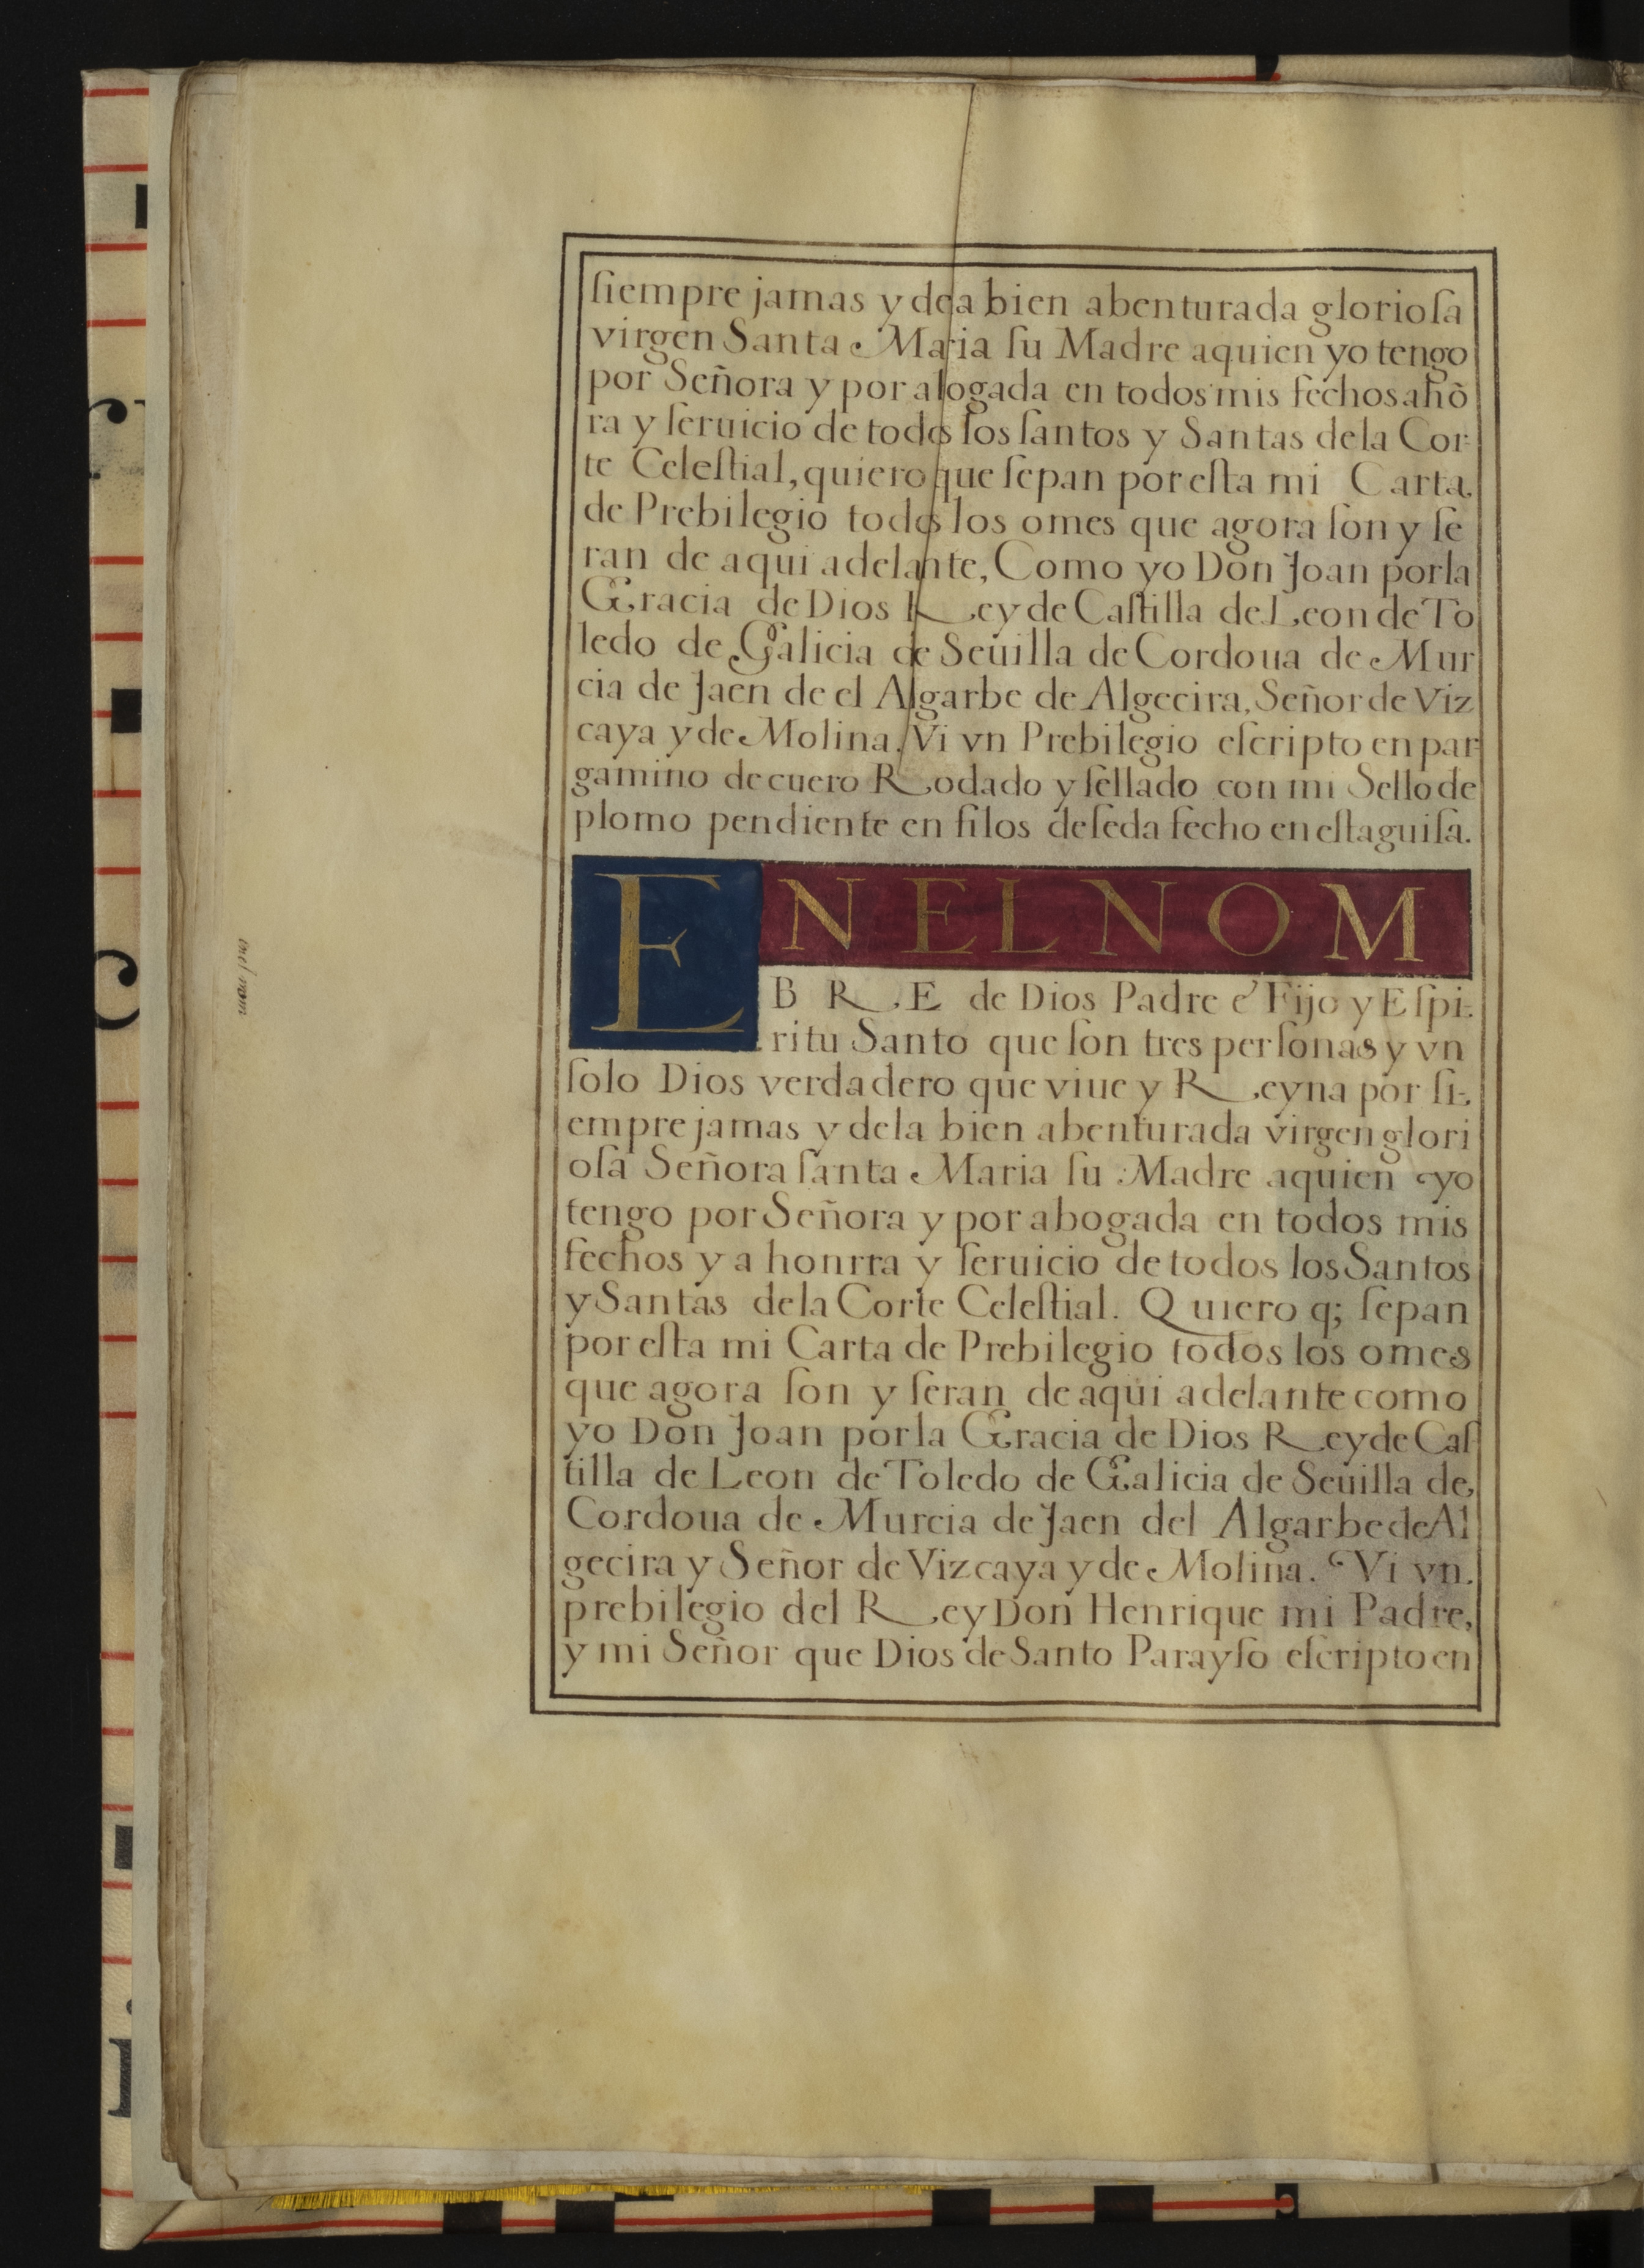 ſiempre jamas y dela bien abenturada glorioſa
virgen Santa Maria ſu Madre aquien yo tengo
por Señora y por abogada en todos mis fechos ahō
ra y ſeruicio de todos los ſantos y Santas dela Cor-
te Celeſtial, quiero que ſepan por eſta mi Carta
de Prebilegio todos los omes que agora ſon y ſe
ran de aqui adelante, Como yo Don Joan por la
Gracia de Dios Rey de Caſtilla de Leon de To
ledo de Galicia de Seuilla de Cordoua de Mur
cia de Jaen de el Algarbe de Algecira, Señor de Viz
caya y de Molina. Vi vn Prebilegio eſcripto en par
gamino de cuero Rodado y ſellado con mi Sello de
plomo pendiente en filos de ſeda fecho en eſta guiſa.
EN EL NOM
BRE de Dios Padre e Fijo y Eſpi-
ritu Santo que ſon tres perſonas y vn
ſolo Dios verdadero que viue y Reyna por ſi-
empre jamas y dela bien abenturada virgen glori
oſa Señora ſanta Maria ſu Madre aquien yo
tengo por Señora y por abogada en todos mis
fechos y a honrra y ſeruicio de todos los Santos
y Santas dela Corte Celeſtial. Quiero q; ſepan
por eſta mi Carta de Prebilegio todos los omes
que agora ſon y ſeran de aqui adelante como
yo Don Joan por la Gracia de Dios Rey de Caſ
tilla de Leon de Toledo de Galicia de Seuilla de
Cordoua de Murcia de Jaen del Algarbe de Al
gecira y Señor de Vizcaya y de Molina. Vi vn
prebilegio del Rey Don Henrique mi Padre,
y mi Señor que Dios de Santo Parayſo eſcripto en